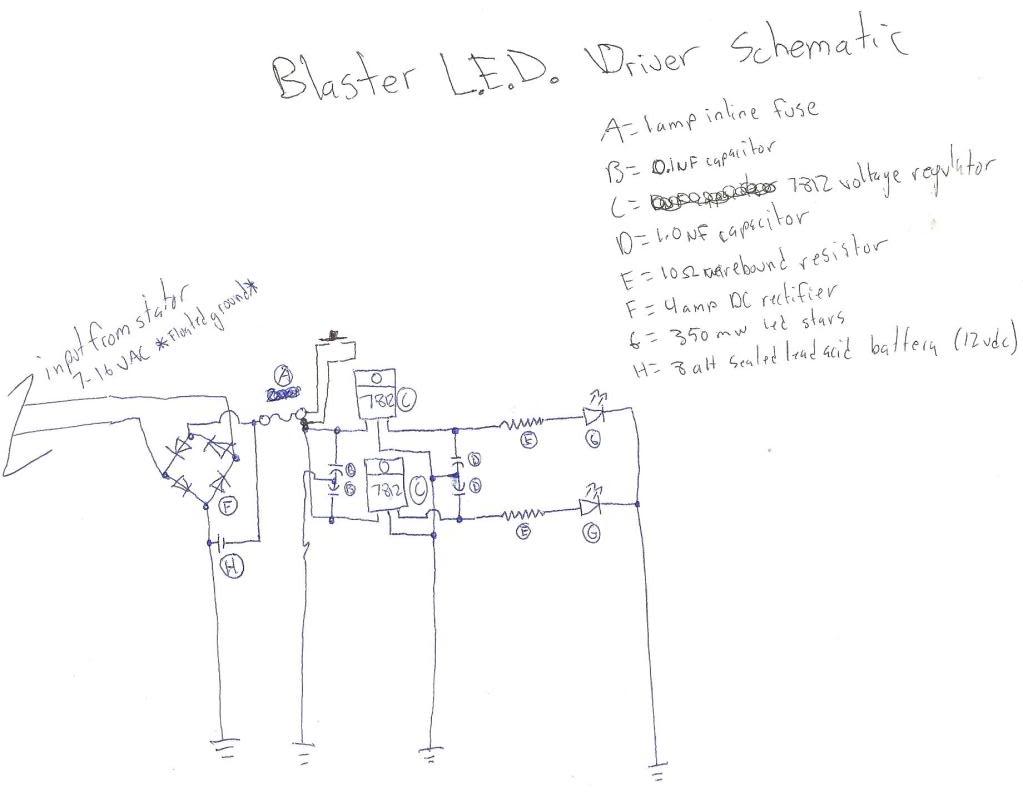 Blaster L.E.D. Driver Schematic
A= 1amp inline fuse
B= 0.1NF capacitor
C= 7812 voltage regulator
D= 1.0NF capacitor
E= 10Ω wirebound resistor
F= 4amp DC rectifier
G= 350mw led stars
H= 8aH sealed lead acid battery (12vdc)
input from stator
7-16 VAC *Floated ground*
A
O
7812 C
G
E
D
B
D
D
O
7812 C
F
E
G
H